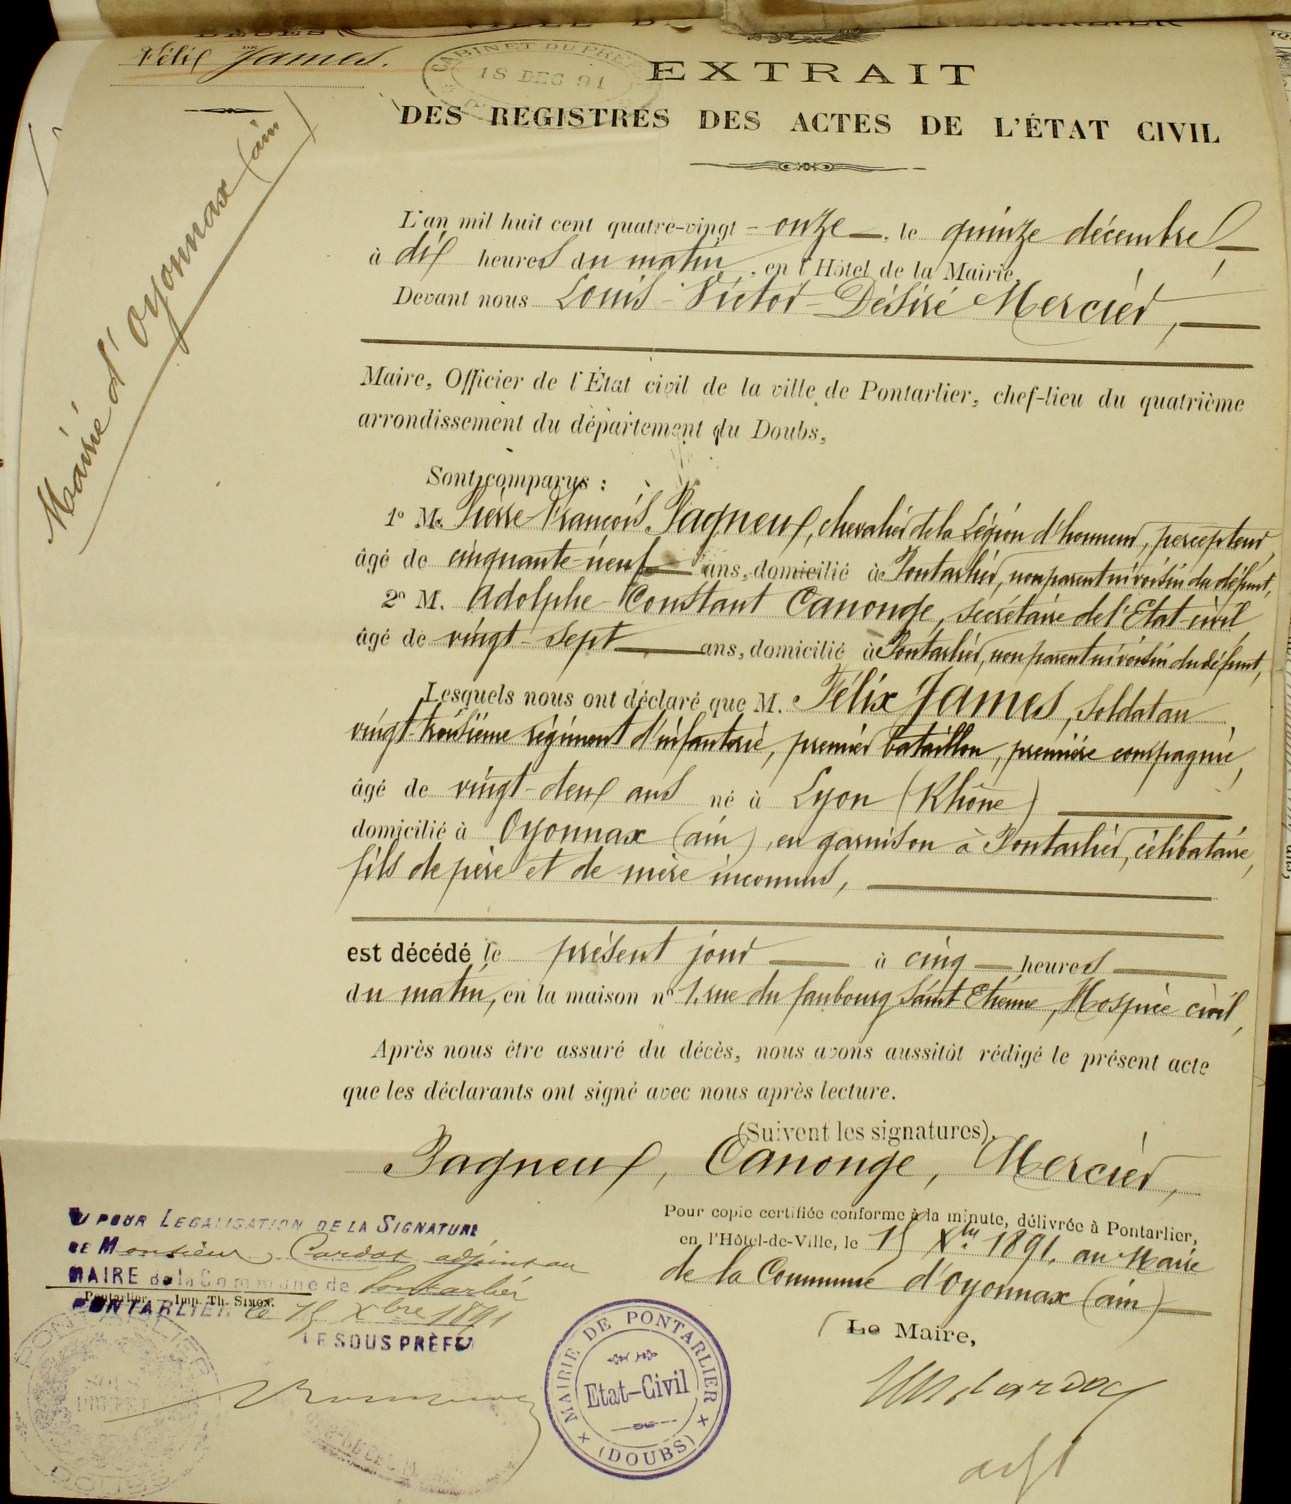 Félix James.
CABINET DU PRÉFET
18 DEC 91
EXTRAIT
DES REGISTRES DES ACTES DE L'ÉTAT CIVIL
Mairie d'Oyonnax (ain)
L'an mil huit cent quatre-vingt-onze, le quinze décembre
à dix heures du matin, en l'Hôtel de la Mairie,
Devant nous Louis-Victor-Désiré Mercier,
Maire, Officier de l'État civil de la ville de Pontarlier, chef-lieu du quatrième
arrondissement du département du Doubs,
Sont comparus :
1° M. Pierre-François Pagneux, chevalier de la Légion d'honneur, percepteur,
âgé de cinquante-neuf ans, domicilié à Pontarlier, non parent ni voisin du défunt,
2° M. Adolphe-Constant Canonge, secrétaire de l'Etat-civil
âgé de vingt-sept ans, domicilié à Pontarlier, non parent ni voisin du défunt,
Lesquels nous ont déclaré que M. Félix James, soldat au
vingt-troisième régiment d'infanterie, premier bataillon, première compagnie,
âgé de vingt-deux ans né à Lyon (Rhône)
domicilié à Oyonnax (ain), en garnison à Pontarlier, célibataire,
fils de père et de mère inconnus,
est décédé le présent jour à cinq heures
du matin, en la maison n° 1, rue du faubourg Saint Etienne, Hospice civil,
Après nous être assuré du décès, nous avons aussitôt rédigé le présent acte
que les déclarants ont signé avec nous après lecture.
(Suivent les signatures).
Pagneux, Canonge, Mercier,
Pour copie certifiée conforme à la minute, délivrée à Pontarlier,
en l'Hôtel-de-Ville, le 15 Xbre 1891. au Maire
de la Commune d'Oyonnax (ain)
Le Maire,
adjt
VU POUR LEGALISATION DE LA SIGNATURE
DE Monsieur Cardot adjoint au
MAIRE de la Commune de Pontarlier
Pontarlier. — Imp. Th. Simon.
PONTARLIER le 15 Xbre 1891
LE SOUS PRÈFET
MAIRIE DE PONTARLIER
Etat-Civil
(DOUBS)
PONTARLIER
DOUBS